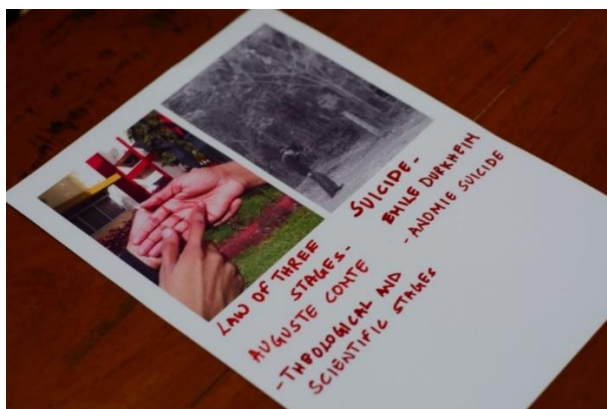 LAW OF THREE
STAGES-
AUGUSTE COMTE
-THEOLOGICAL AND
SCIENTIFIC STAGES
SUICIDE-
EMILE DURKHEIM
-ANOMIE SUICIDE